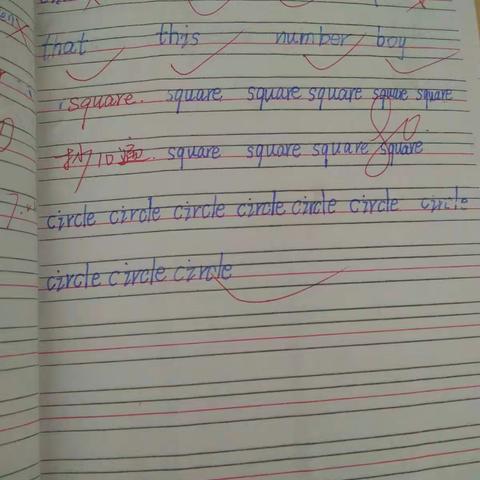 that this number boy
square. square square square square square
抄10遍. square square square square
circle circle circle circle circle circle circle
circle circle circle